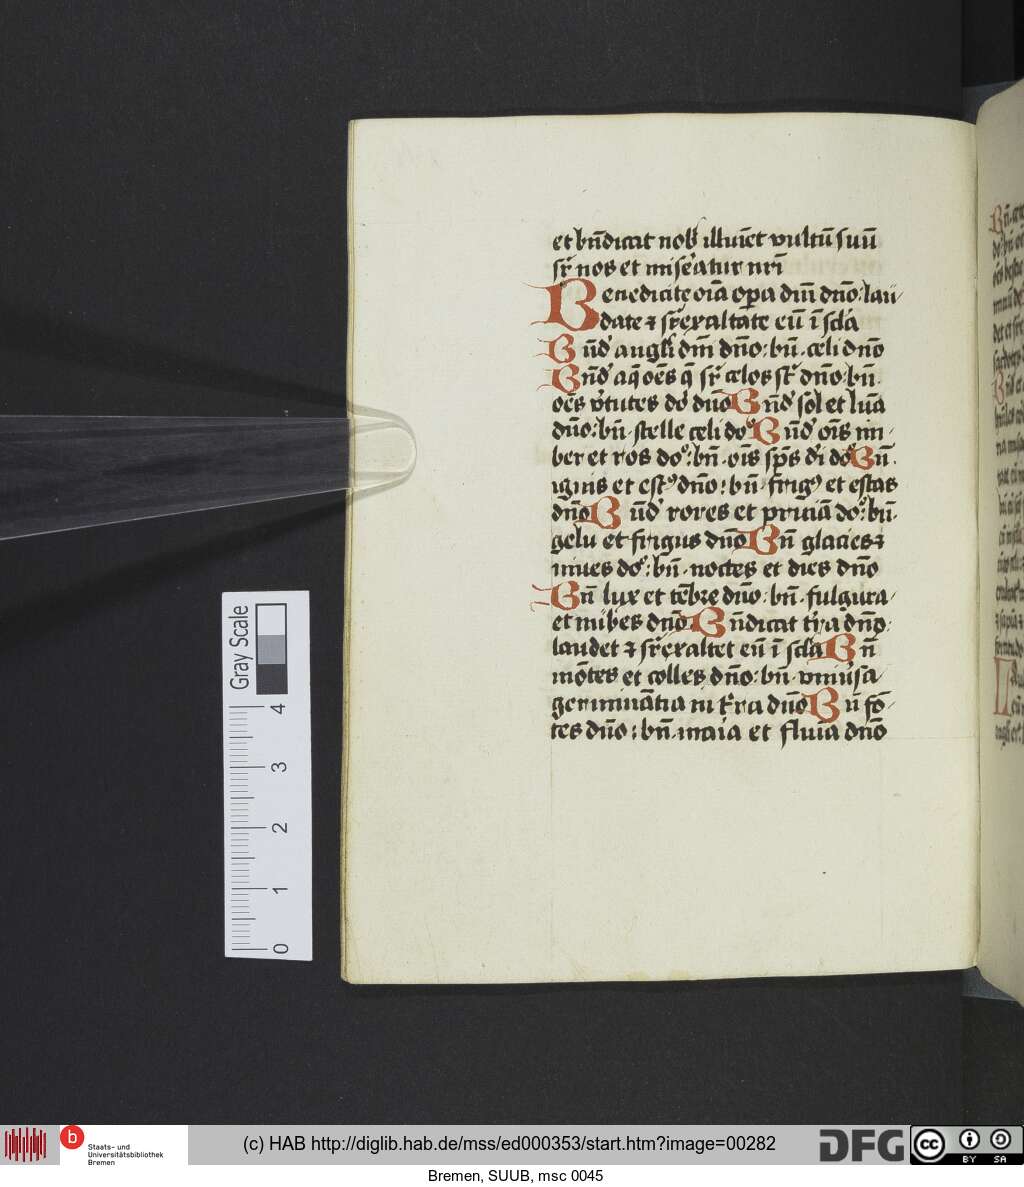 et bn̄dicat nob̄ illuīet vultū suū
sr̄ nos et mis̄eatur nr̄i
Benedicite oīa oꝑa dn̄i dn̄o: lau-
date ⁊ sr̄exaltate eū ī sc̄la
Bn̄d angl̄i dn̄i dn̄o: bn̄. celi dn̄o
Bn̄d aq̄ oēs q̄ sr̄ celos st̄ dn̄o: bn̄.
oēs v̄tutes do᷒ dn̄o Bn̄d sol et lūa
dn̄o: bn̄. stelle celi do᷒ Bn̄d oīs im-
ber et ros do᷒: bn̄. oīs sp̄s d̄i do᷒ Bn̄.
ignis et est᷒ dn̄o: bn̄. frig᷒ et estas
dn̄o Bn̄d rores et pruīa do᷒: bn̄.
gelu et frigus dn̄o Bn̄ glacies ⁊
niues do᷒: bn̄. noctes et dies dn̄o
Bn̄ lux et tēbre dn̄o: bn̄. fulgura
et nubes dn̄o Bn̄dicat t̄ra dn̄o:
laudet ⁊ sr̄exaltet eū ī sc̄la Bn̄
mōtes et colles dn̄o: bn̄. vniūsa
germināntia in t̄ra dn̄o Bn̄ fō-
tes dn̄o: bn̄. maīa et fluīa dn̄o
Gray Scale
0 1 2 3 4
b
Staats- und
Universitätsbibliothek
Bremen
(c) HAB http://diglib.hab.de/mss/ed000353/start.htm?image=00282
DFG
cc BY SA
Bremen, SUUB, msc 0045